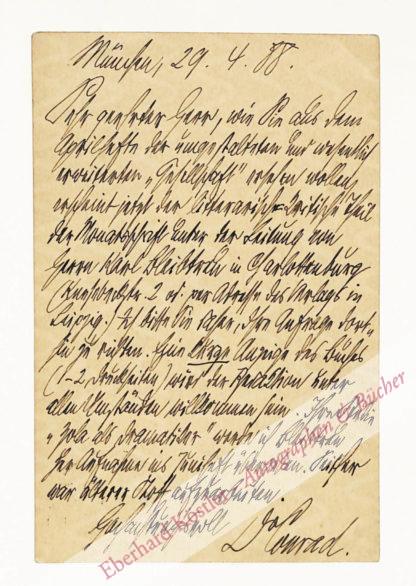 München, 29. 4. 88.
Sehr geehrter Herr, wie Sie aus dem
Aprilhefte der umgestalteten und wesentlich
erweiterten „Gesellschaft“ ersehen wollen,
erscheint jetzt der litterarisch=kritische Theil
der Monatsschrift unter der Leitung von
Herrn Karl Bleibtreu in Charlottenburg
(Knesebeckstr. 2 od. per Adresse des Verlags in
Leipzig.) Ich bitte Sie daher, Ihre Anfrage dort=
hin zu richten. Eine Anzeige des Buches
(1-2 Druckseiten) wird der Redaktion unter
allen Umständen willkommen sein. Ihre
„Zola als Dramatiker“ werde ich Bleibtreu
zur Aufnahme ins Juniheft Bisher
war älterer Stoff aufzuarbeiten.
Hochachtungsvoll
Dr Conrad.
Eberhard Köstler Autographen & Bücher